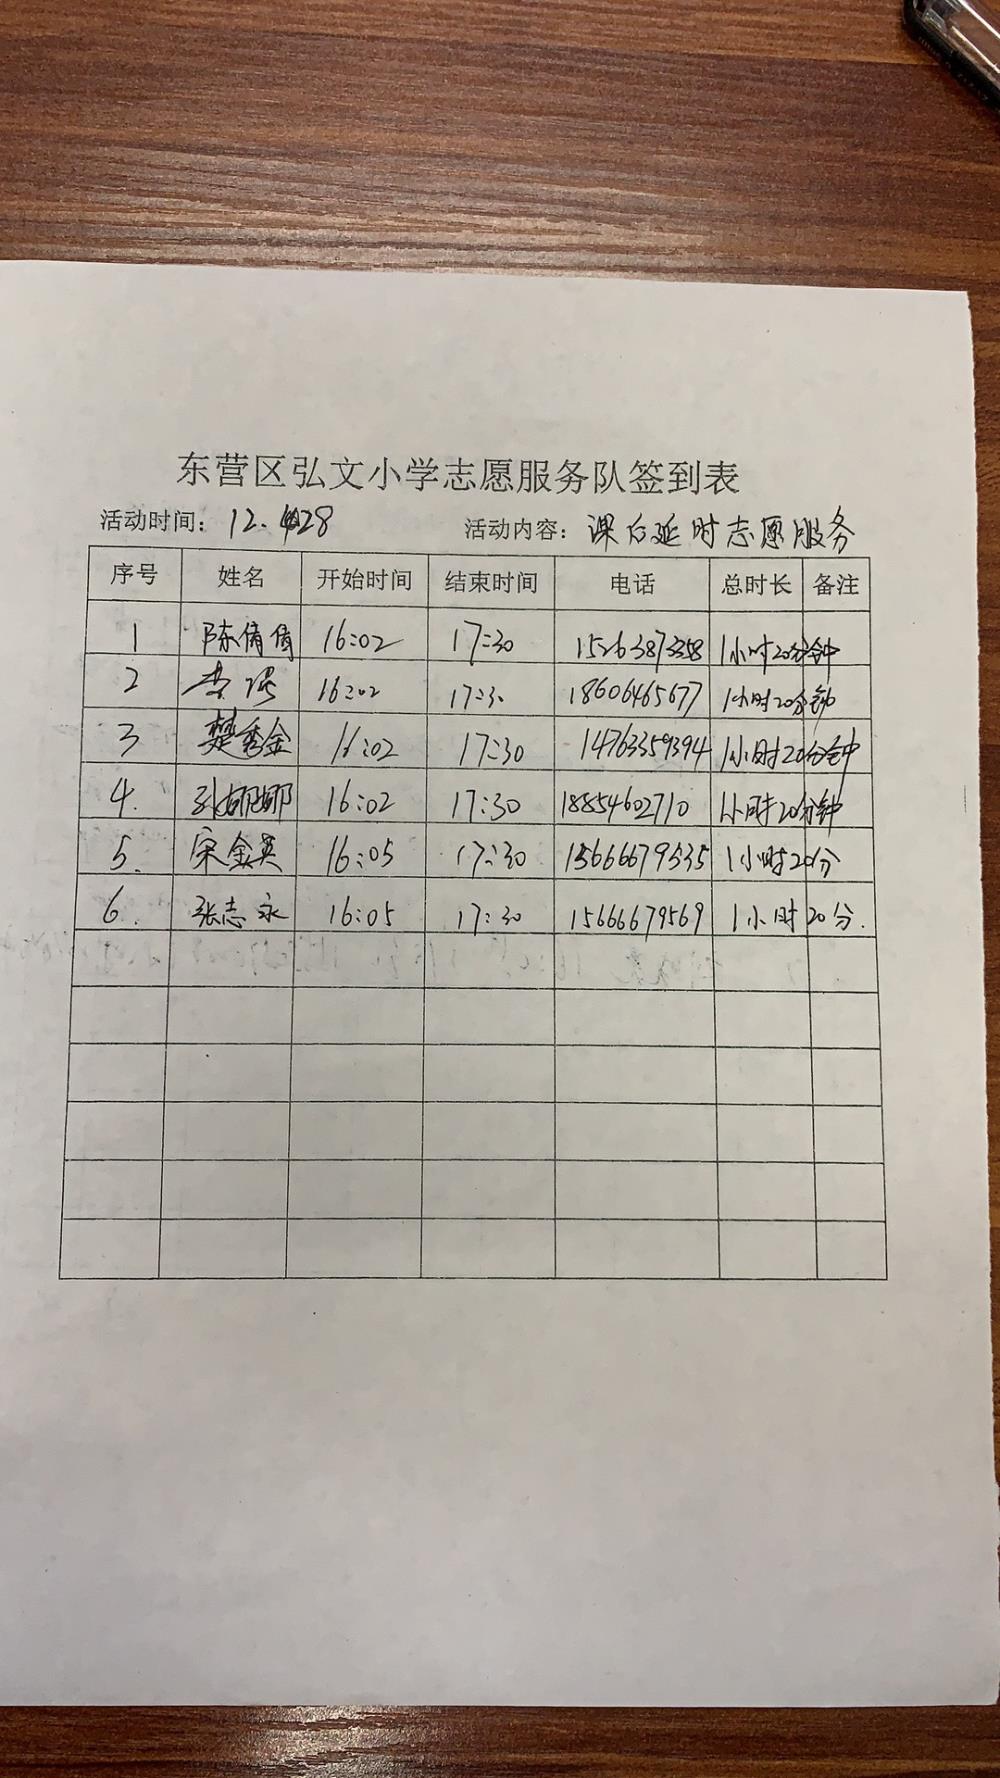 东营区弘文小学志愿服务队签到表
活动时间: 12.28 活动内容: 课后延时志愿服务
序号 姓名 开始时间 结束时间 电话 总时长 备注
1 陈倩倩 16:02 17:30 15263873358 1小时20分钟
2 李 16:02 17:30 18606465677 1小时20分钟
3 樊秀金 16:02 17:30 14763359394 1小时20分钟
4. 孙娜娜 16:02 17:30 18854602710 1小时20分钟
5. 宋金英 16:05 17:30 15666679535 1小时20分
6. 张志永 16:05 17:30 15666679569 1小时20分.